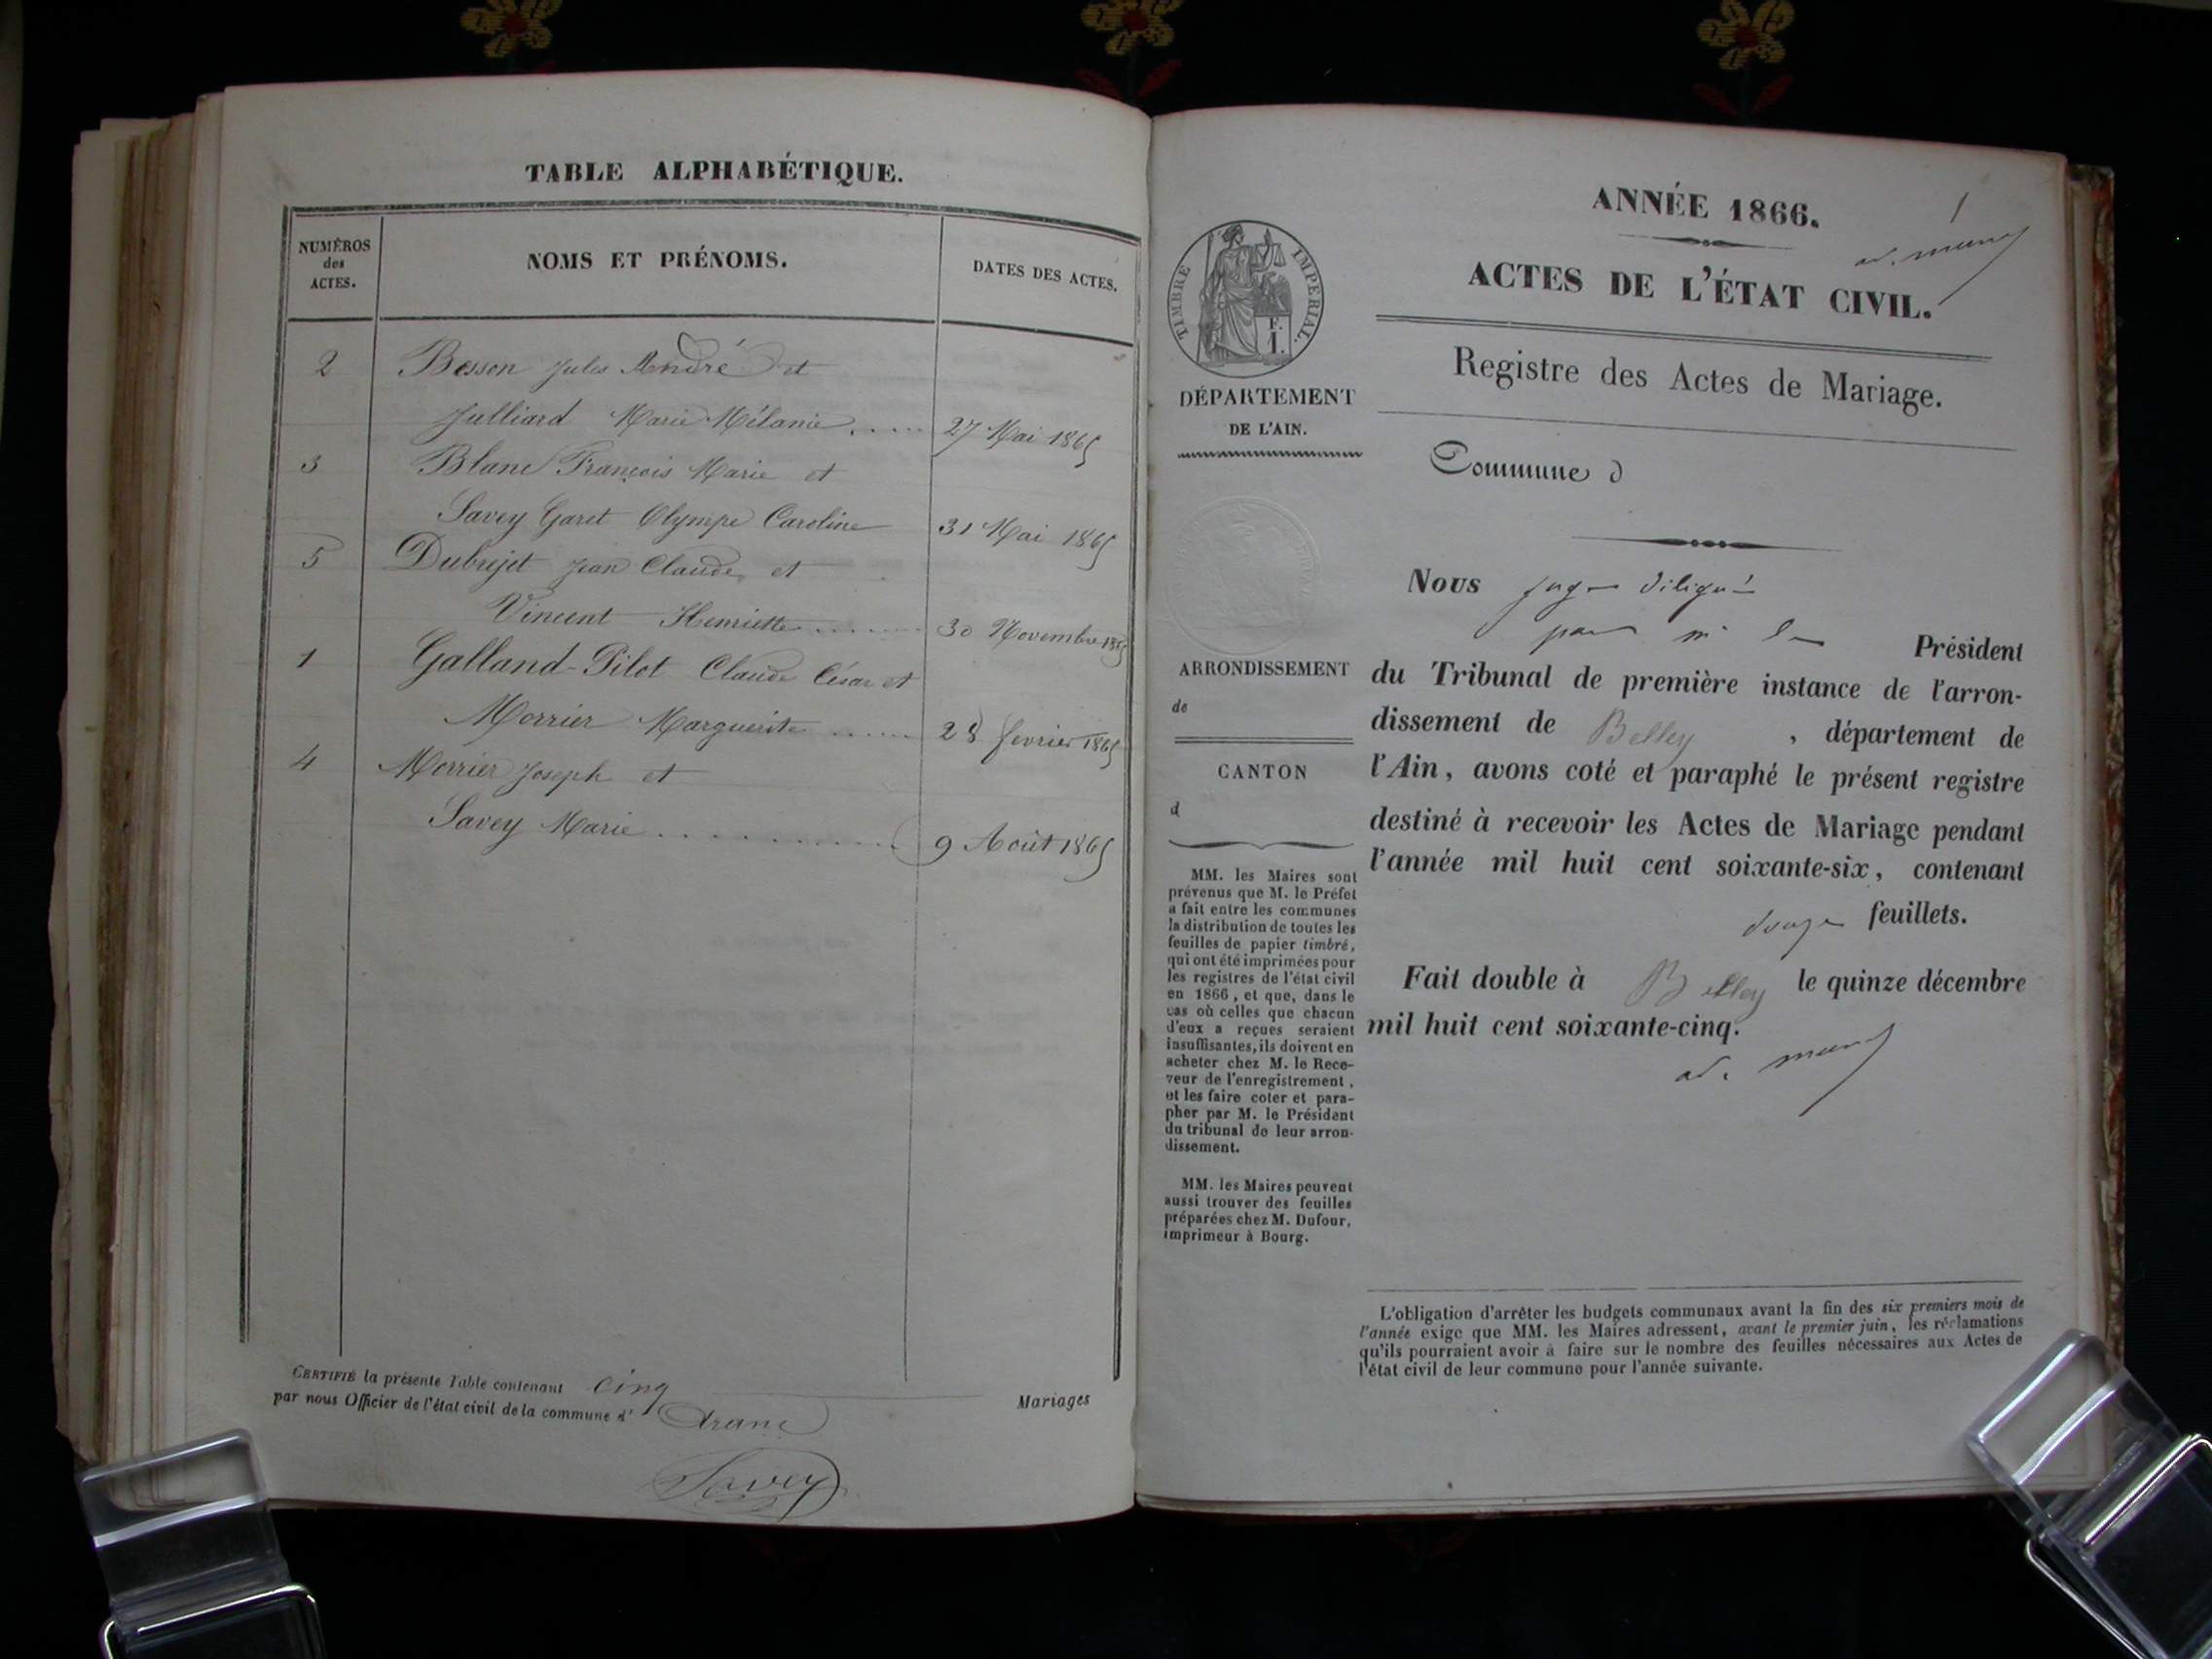 TABLE ALPHABÉTIQUE.
NUMÉROS
des
ACTES.
NOMS ET PRÉNOMS.
DATES DES ACTES.
2 Besson Jules André et
Julliard Marie Mélanie ..... 27 Mai 1865
3 Blanc François Marie et
Savey Garet Olympe Caroline 31 Mai 1865
5 Dubrejet Jean Claude et
Vincent Henriette ....... 30 Novembre 1865
1 Galland-Pilot Claude César et
Morrier Marguerite ...... 28 fevrier 1865
4 Morrier Joseph et
Savey Marie ............ 9 Août 1865
CERTIFIÉ la présente Table contenant cinq Mariages
par nous Officier de l'état civil de la commune d' Aranc
Savey
1
ANNÉE 1866.
ACTES DE L'ÉTAT CIVIL.
Registre des Actes de Mariage.
TIMBRE IMPERIAL.
F.
1.
DÉPARTEMENT
DE L'AIN.
Commune d
ARRONDISSEMENT
de
CANTON
d
MM. les Maires sont
prévenus que M. le Préfet
a fait entre les communes
la distribution de toutes les
feuilles de papier timbré,
qui ont été imprimées pour
les registres de l'état civil
en 1866, et que, dans le
cas où celles que chacun
d'eux a reçues seraient
insuffisantes, ils doivent en
acheter chez M. le Rece-
veur de l'enregistrement,
et les faire coter et para-
pher par M. le Président
du tribunal de leur arron-
dissement.
MM. les Maires peuvent
aussi trouver des feuilles
préparées chez M. Dufour,
imprimeur à Bourg.
Nous juge délégué
par m le Président
du Tribunal de première instance de l'arron-
dissement de Belley, département de
l'Ain, avons coté et paraphé le présent registre
destiné à recevoir les Actes de Mariage pendant
l'année mil huit cent soixante-six, contenant
douze feuillets.
Fait double à Belley le quinze décembre
mil huit cent soixante-cinq.
L'obligation d'arrêter les budgets communaux avant la fin des six premiers mois de
l'année exige que MM. les Maires adressent, avant le premier juin, les réclamations
qu'ils pourraient avoir à faire sur le nombre des feuilles nécessaires aux Actes de
l'état civil de leur commune pour l'année suivante.